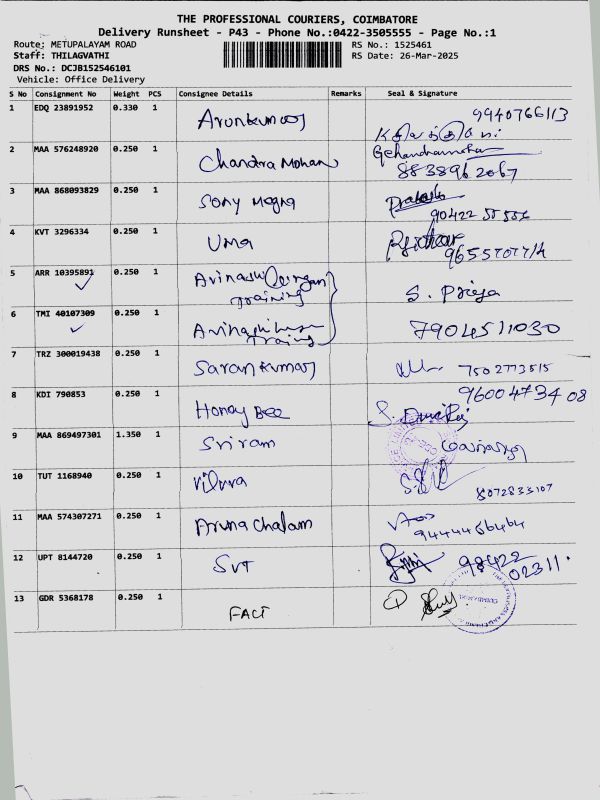 THE PROFESSIONAL COURIERS, COIMBATORE
Delivery Runsheet - P43 - Phone No.:0422-3505555 - Page No.:1
Route: METUPALAYAM ROAD RS No.: 1525461
Staff: THILAGVATHI RS Date: 26-Mar-2025
DRS No.: DCJB152546101
Vehicle: Office Delivery
S No Consignment No Weight PCS Consignee Details Remarks Seal & Signature
1 EDQ 23891952 0.330 1 Arunkumar 9940766113
2 MAA 576248920 0.250 1 Chandra Mohan 8838962067
3 MAA 868093829 0.250 1 Sony Mogra 90422 55556
4 KVT 3296334 0.250 1 Uma
5 ARR 10395891 0.250 1 Avinashilingam Training S. Priya
6 TMI 40107309 0.250 1 7904511030
7 TRZ 300019438 0.250 1 Saran Kumar 7502773515
8 KDI 790853 0.250 1 Honey Bee 96004734 08
9 MAA 869497301 1.350 1 Sriram
10 TUT 1168940 0.250 1 8072833107
11 MAA 574307271 0.250 1 Aruna Chalam 9444466464
12 UPT 8144720 0.250 1 SVT 98422 02311
13 GDR 5368178 0.250 1 FACT